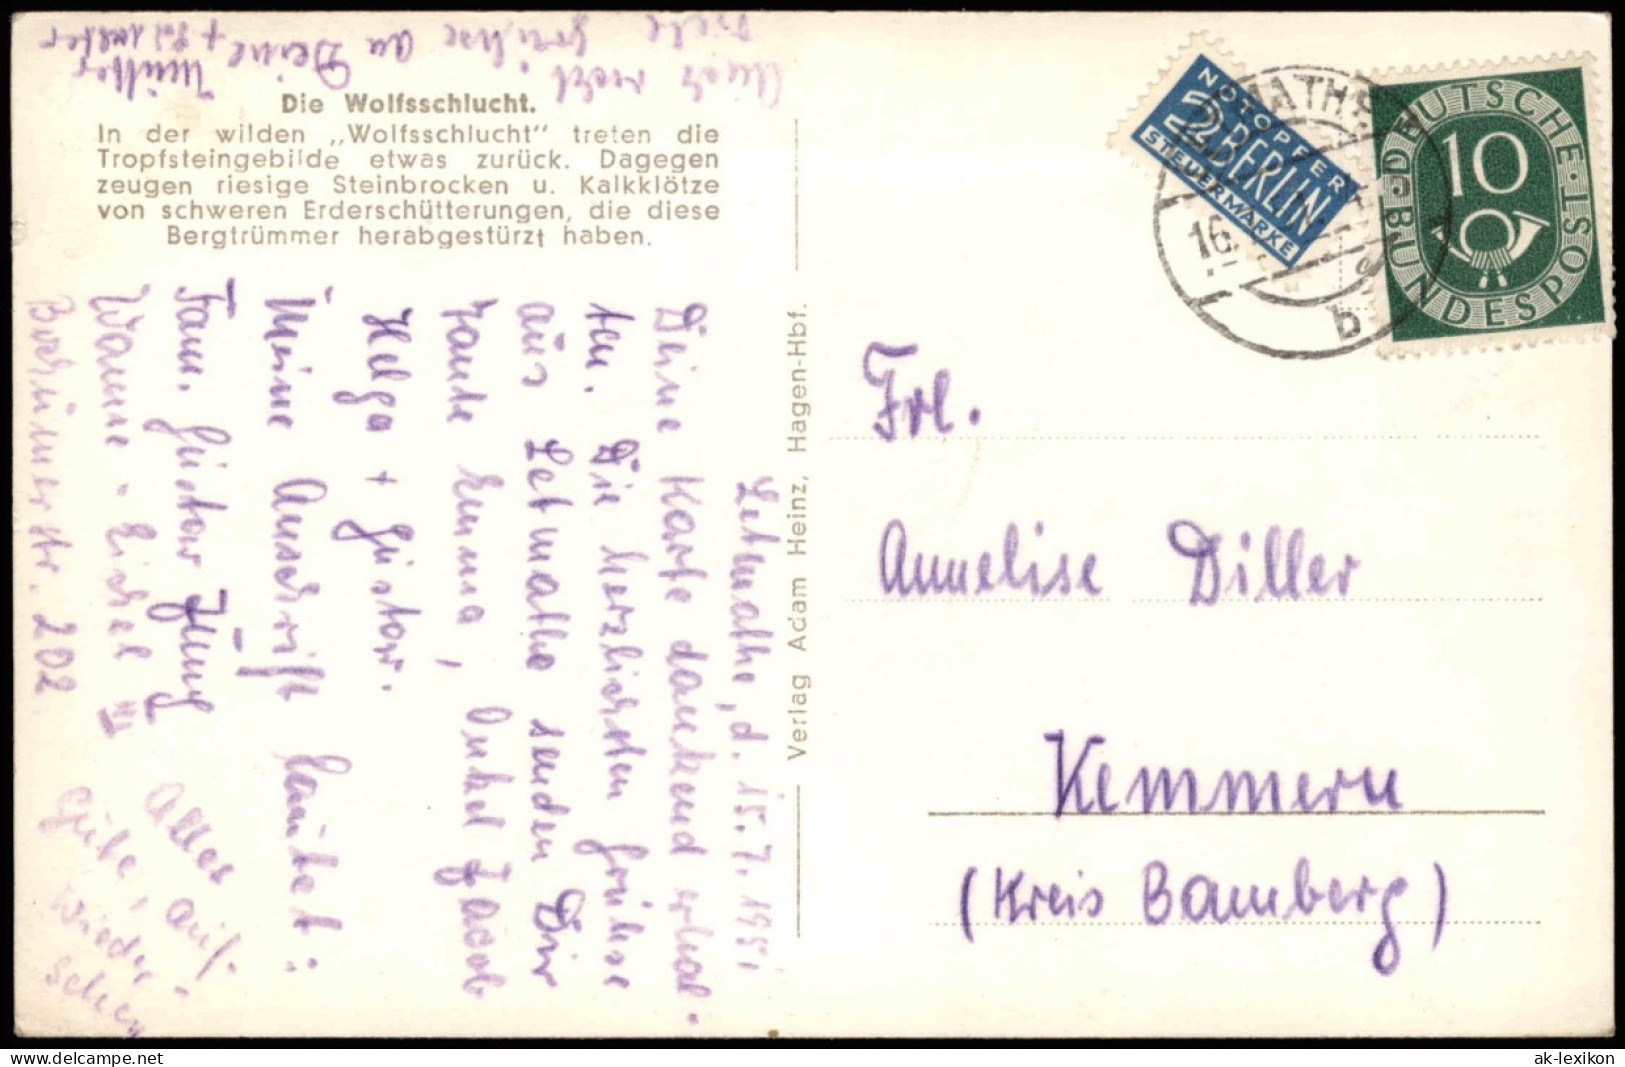 Auch recht
viele Grüße an Deine
Mutter + Falmeter
Die Wolfsschlucht.
In der wilden „Wolfsschlucht" treten die
Tropfsteingebilde etwas zurück. Dagegen
zeugen riesige Steinbrocken u. Kalkklötze
von schweren Erderschütterungen, die diese
Bergtrümmer herabgestürzt haben.
Letmathe, d. 15.7.1951
Deine Karte dankend erhal-
ten. Die herzlichsten Grühse
aus Letmathe senden Dir
Tante Emma, Onkel Jacob
Helga + Gustow.
Meine Anschrift lautet:
Fam. Gustow Jüng
Wanne-Eickel III
Bochumerstr. 202
Alles
Gute, auf-
Wieder-
sehen
Verlag Adam Heinz, Hagen-Hbf.
NOTOPFER
2 BERLIN
STEUERMARKE
16.
b
DEUTSCHE BUNDESPOST
10
Frl.
Annelise Diller
Kemmern
(Kreis Bamberg)
www.delcampe.net
ak-lexikon